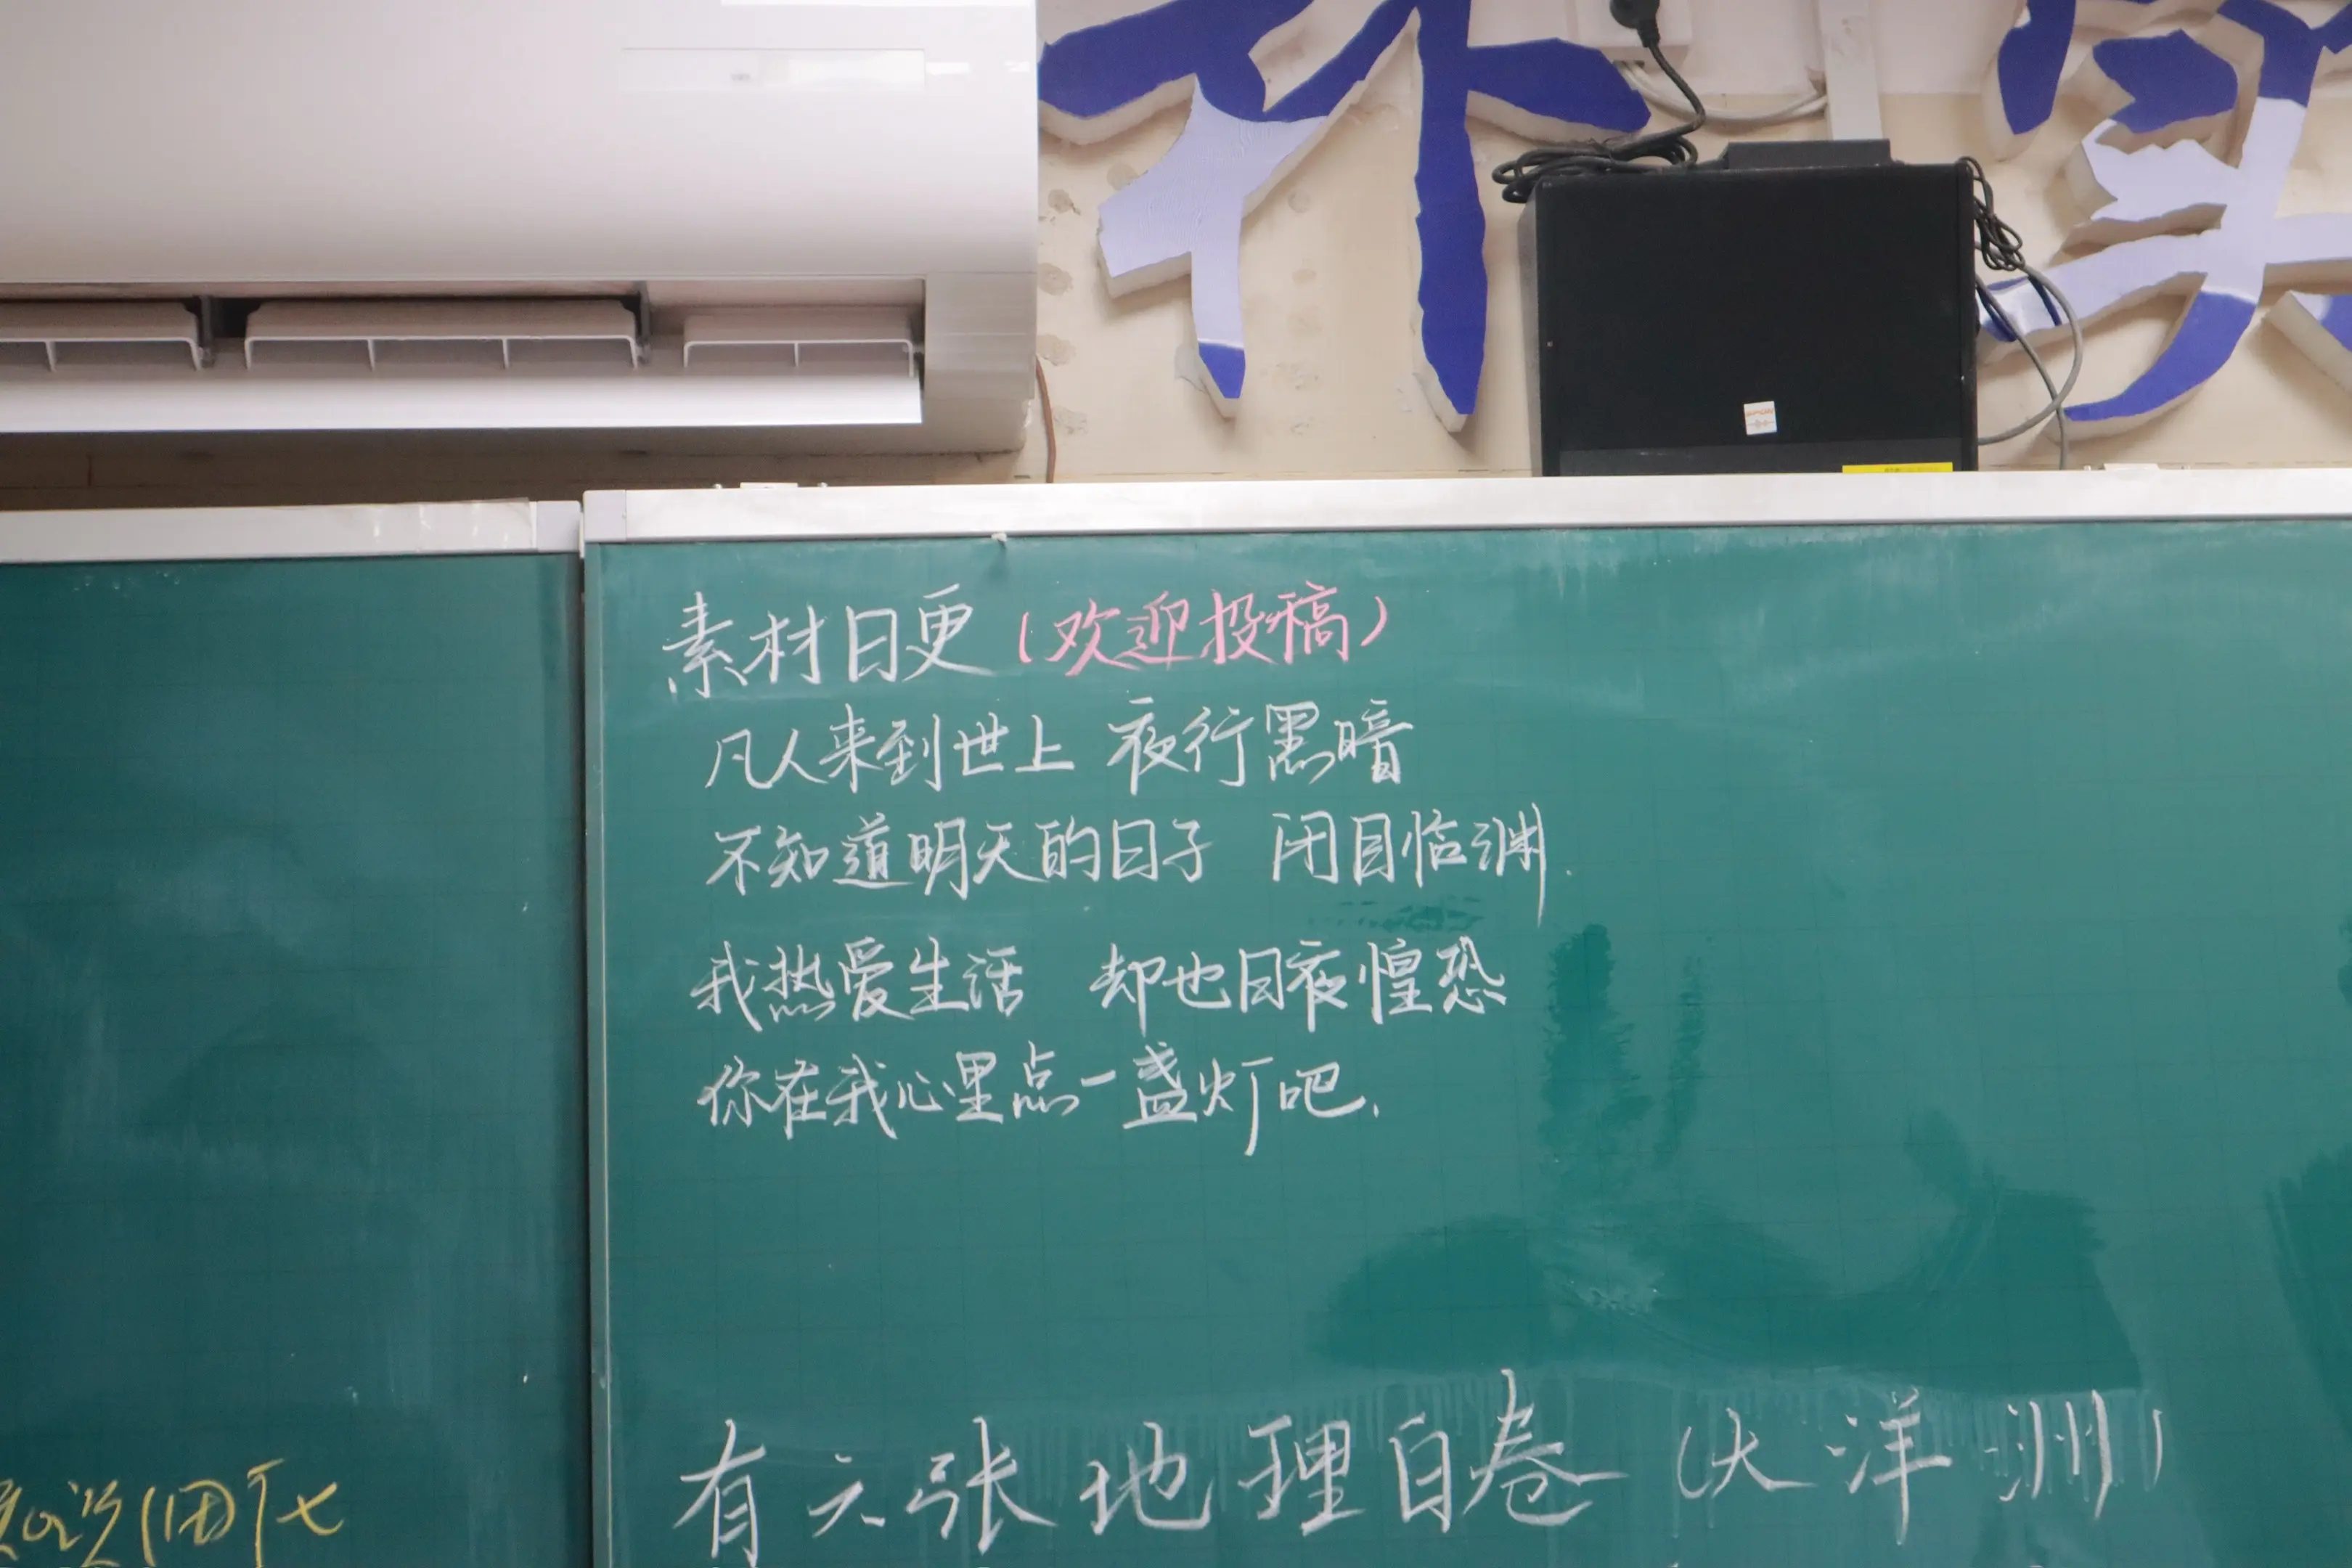 素材日更（欢迎投稿）
凡人来到世上 夜行黑暗
不知道明天的日子 闭目临渊.
我热爱生活 却也日夜惶恐
你在我心里点一盏灯吧.
有六张地理白卷（大洋洲）